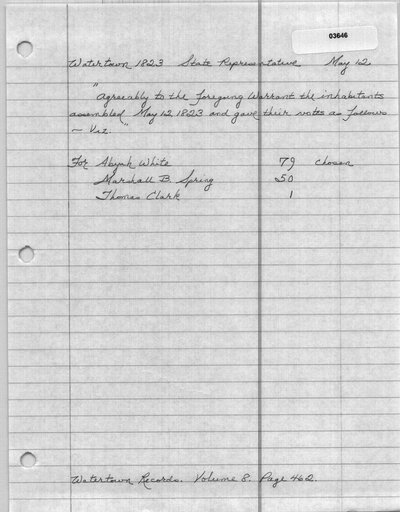 03646
Watertown 1823 State Representative May 12
"Agreeably to the foregoing Warrant the inhabitants
assembled May 12, 1823 and gave their votes as follows
~ Viz. "
For Abijah White 79 chosen
Marshall B. Spring 50
Thomas Clark 1
Watertown Records. Volume 8. Page 462.